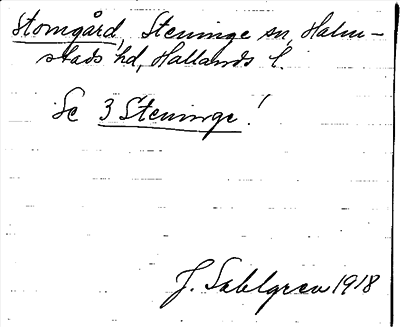 Stomgård, Steninge sn, Halm-
stads hd, Hallands l.
Se 3 Steninge!
J. Sahlgren 1918